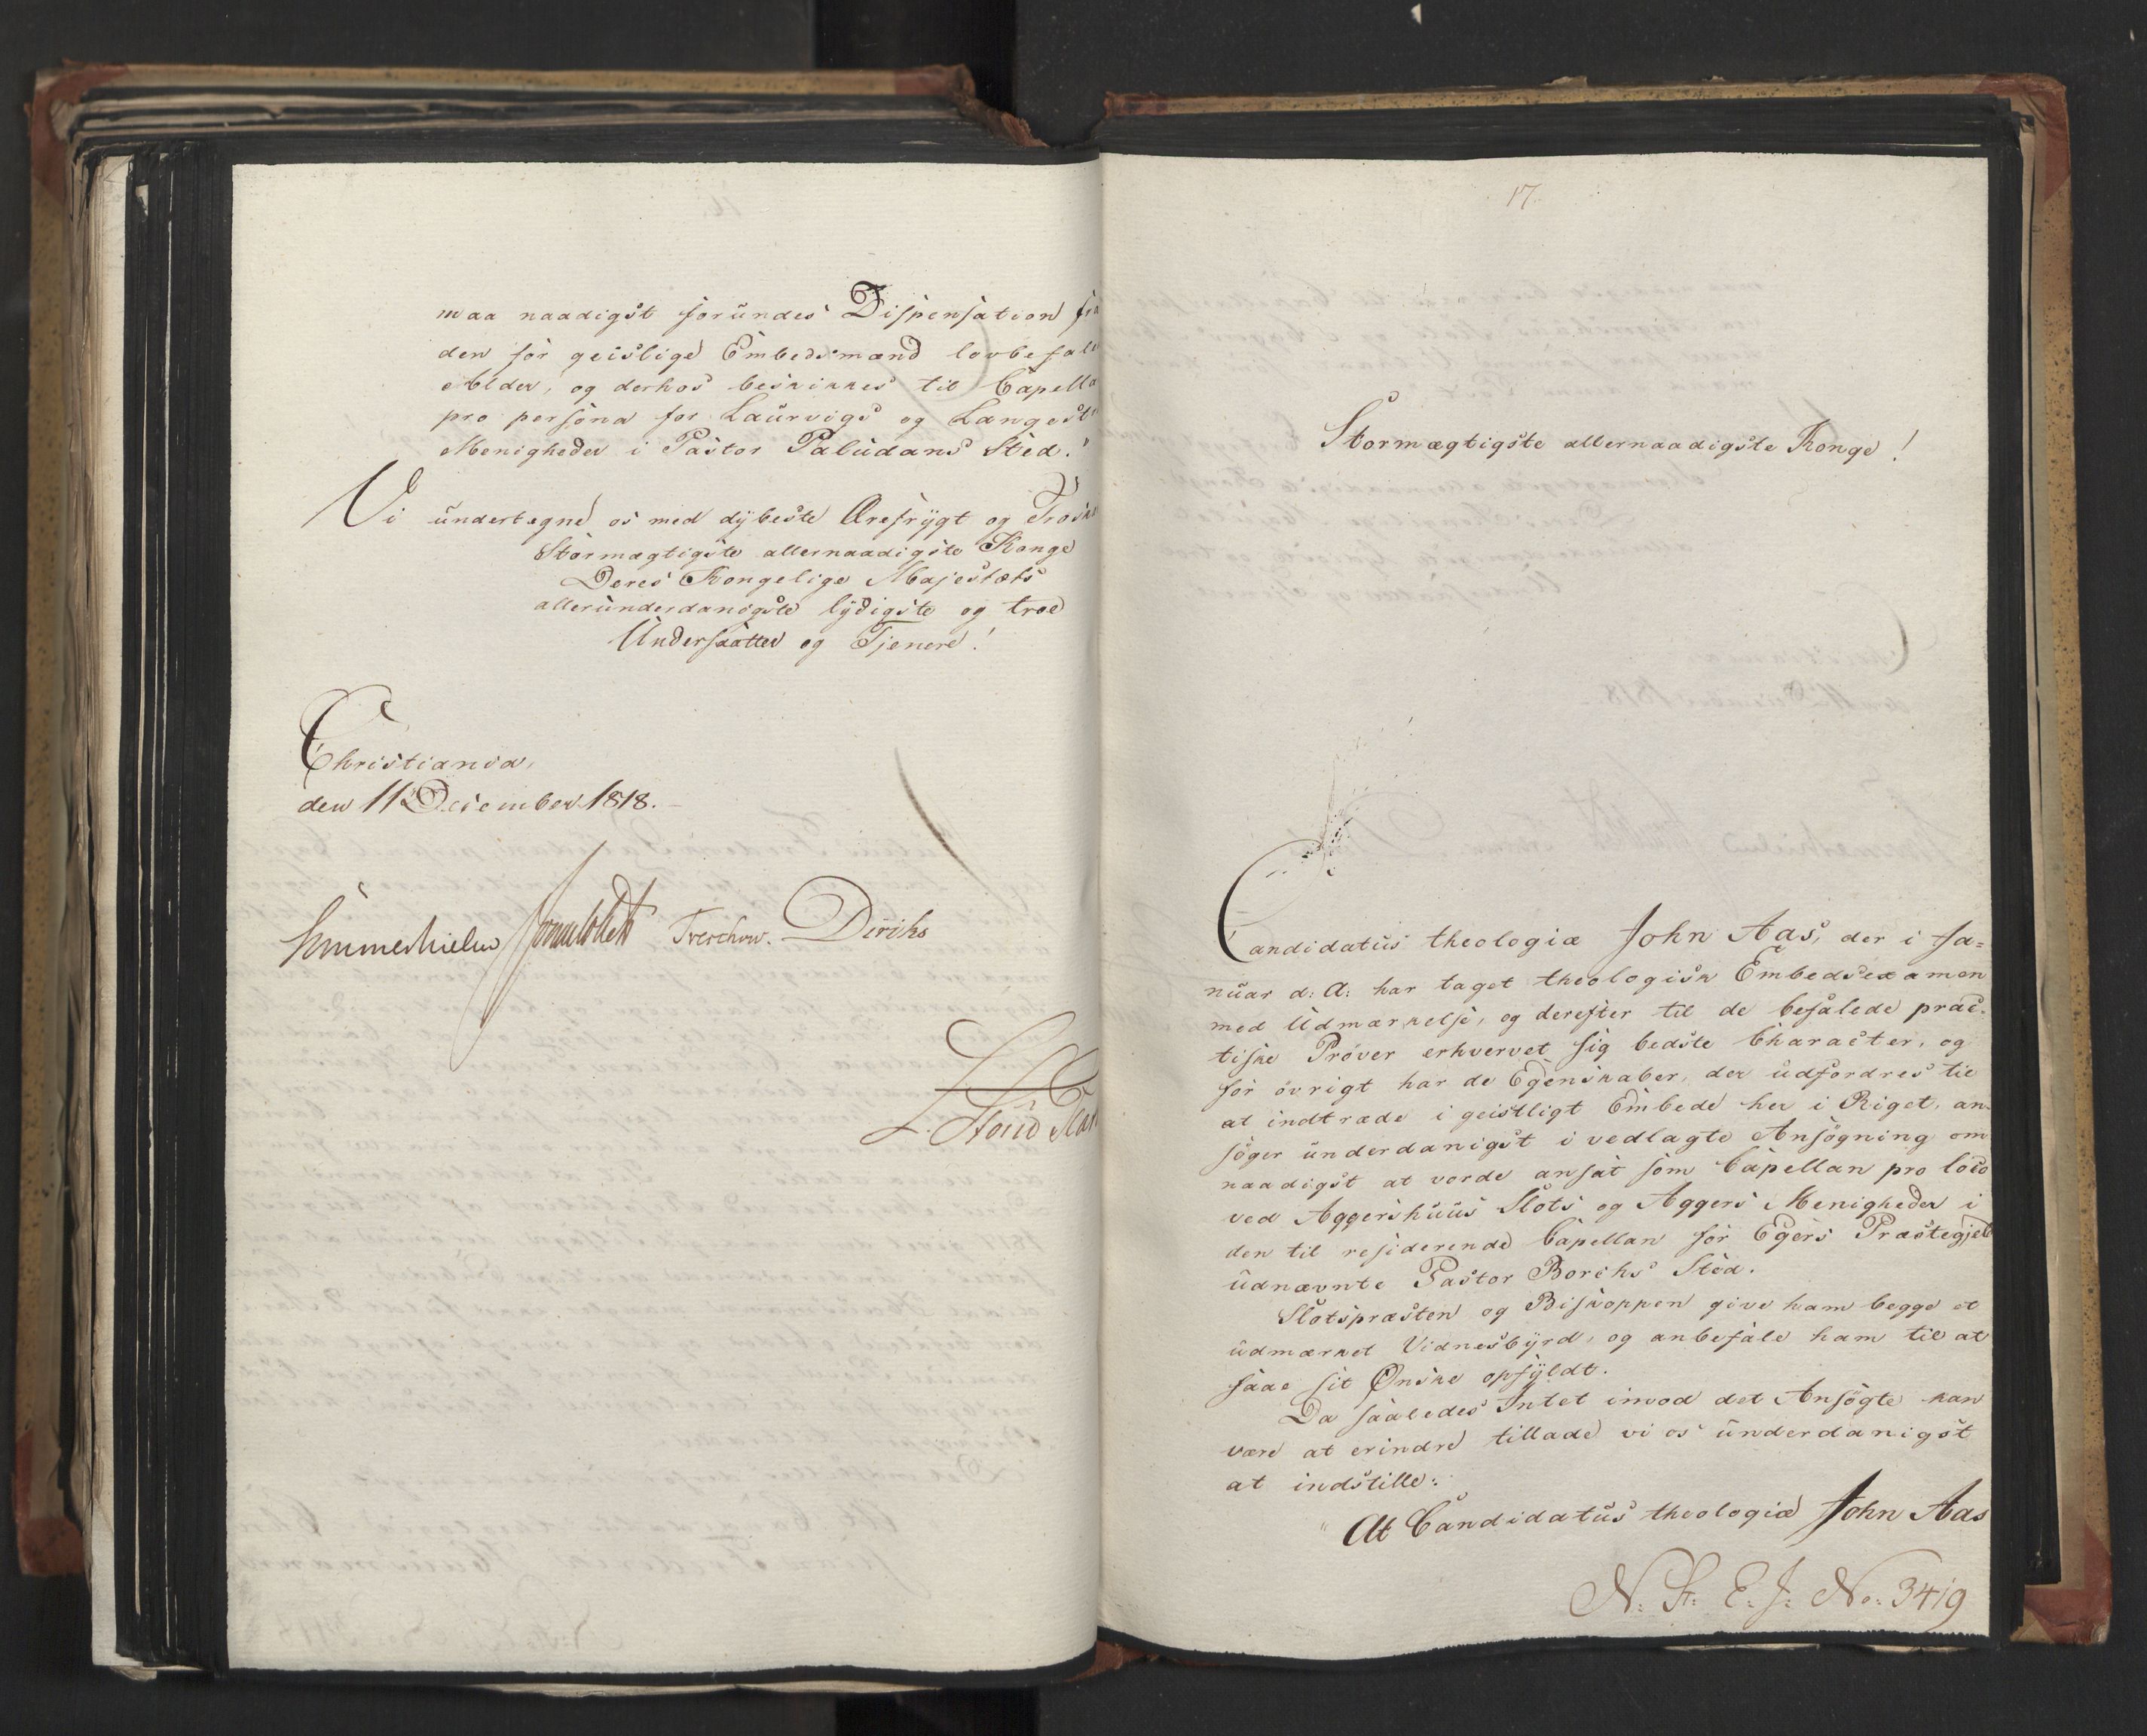 maa naadigst forundes Dispensation fra
den for geistlige Embedsmænd lovbefale
Alder, og derhos beskikkes til Capella
pro persona for Laurvigs og Langest
Menigheder i Pastor Paludans Sted."
Vi undertegne os med dybeste Ærefrygt og Trosk
Stormægtigste allernaadigste Konge
Deres Kongelige Majestæts
allerunderdanigste lydigste og troe
Undersaatter og Tjenere!
Christiania,
den 11 December 1818.
Sommerhielm Treschow. Diriks
17.
Stormægtigste allernaadigste Konge!
Candidatus theologiæ John Aas, der i Ja=
nuar d: A: har taget theologisk Embedsexamen
med Udmærkelse, og derefter til de befalede prac-
tiske Prøver erhvervet sig bedste Character, og
for övrigt har de Egenskaber, der udfordres til
at indtræde i geistligt Embede her i Riget, an-
søger underdanigst i vedlagte Ansøgning om
naadigst at vorde ansat som Capellan pro loco
ved Aggershuus Slots og Aggers Menigheder i
den til residerende Capellan for Egers Præstegjeld
udnævnte Pastor Borchs Sted.
Slotspræsten og Biskoppen give ham begge et
udmærket Vidnesbyrd, og anbefale ham til at
faae sit Ønske opfyldt.
Da saaledes Intet imod det Ansøgte kan
være at erindre tillade vi os underdanigst
at indstille:
"At Candidatus theologiæ John Aas
N: St: E: J: No: 3419